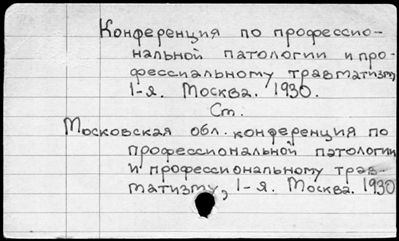 Конференция по профессио-
нальной патологии и про-
фессиальному травматизму
1-я. Москва. 1930.
См.
Московская обл. конференция по
профессиональной патологии
и профессиональному трав-
матизму, 1-я. Москва. 1930